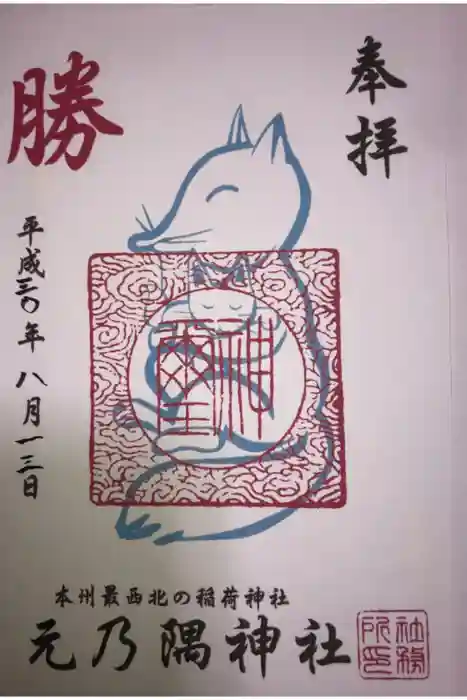 奉拝
勝
神璽
平成三〇年八月一三日
本州最西北の稲荷神社
元乃隅神社
社務所印